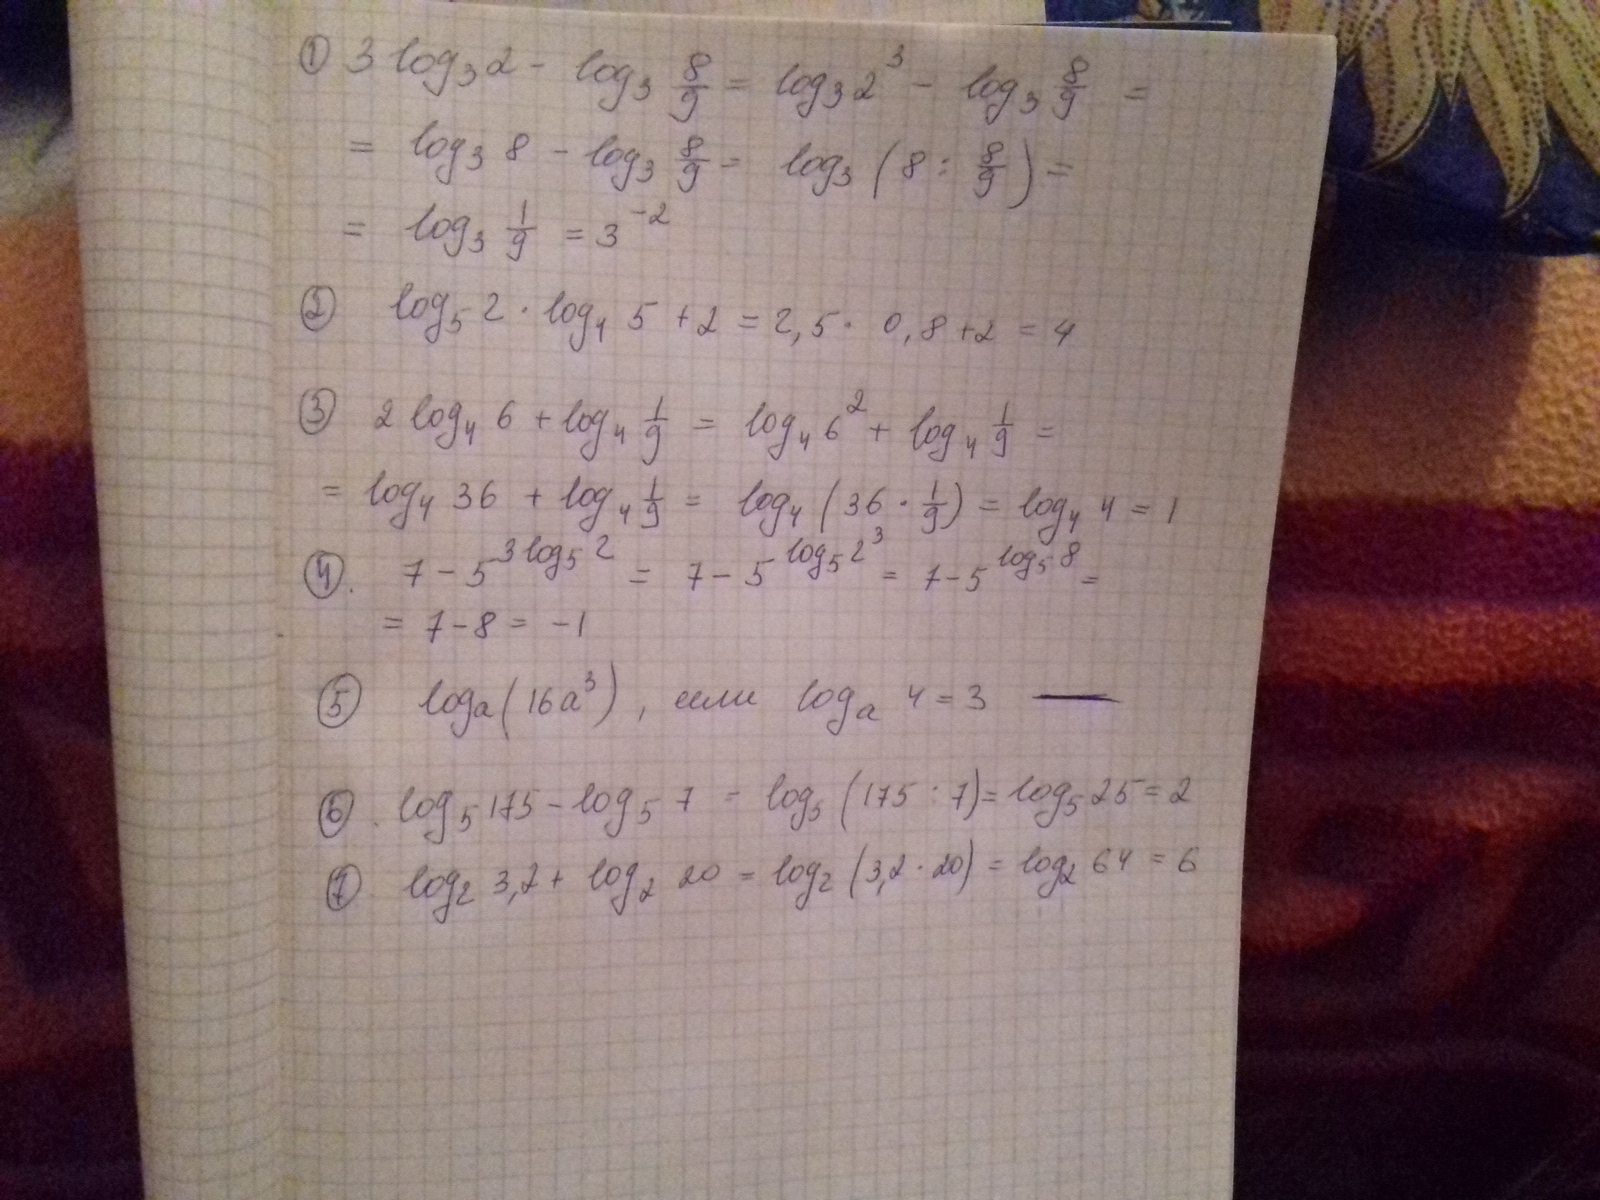 ① 3 log₃2 - log₃ 8/9 = log₃2³ - log₃ 8/9 =
= log₃ 8 - log₃ 8/9 = log₃ (8 : 8/9) =
= log₃ 1/9 = 3⁻²
② log₅ 2 · log₄ 5 + 2 = 2,5 · 0,8 + 2 = 4
③ 2 log₄ 6 + log₄ 1/9 = log₄ 6² + log₄ 1/9 =
= log₄ 36 + log₄ 1/9 = log₄ (36 · 1/9) = log₄ 4 = 1
④. 7 - 5^(3 log₅ 2) = 7 - 5^(log₅ 2³) = 7 - 5^(log₅ 8) =
= 7 - 8 = -1
⑤ logₐ (16a³), если logₐ 4 = 3 —
⑥. log₅ 175 - log₅ 7 = log₅ (175 : 7) = log₅ 25 = 2
⑦ log₂ 3,2 + log₂ 20 = log₂ (3,2 · 20) = log₂ 64 = 6